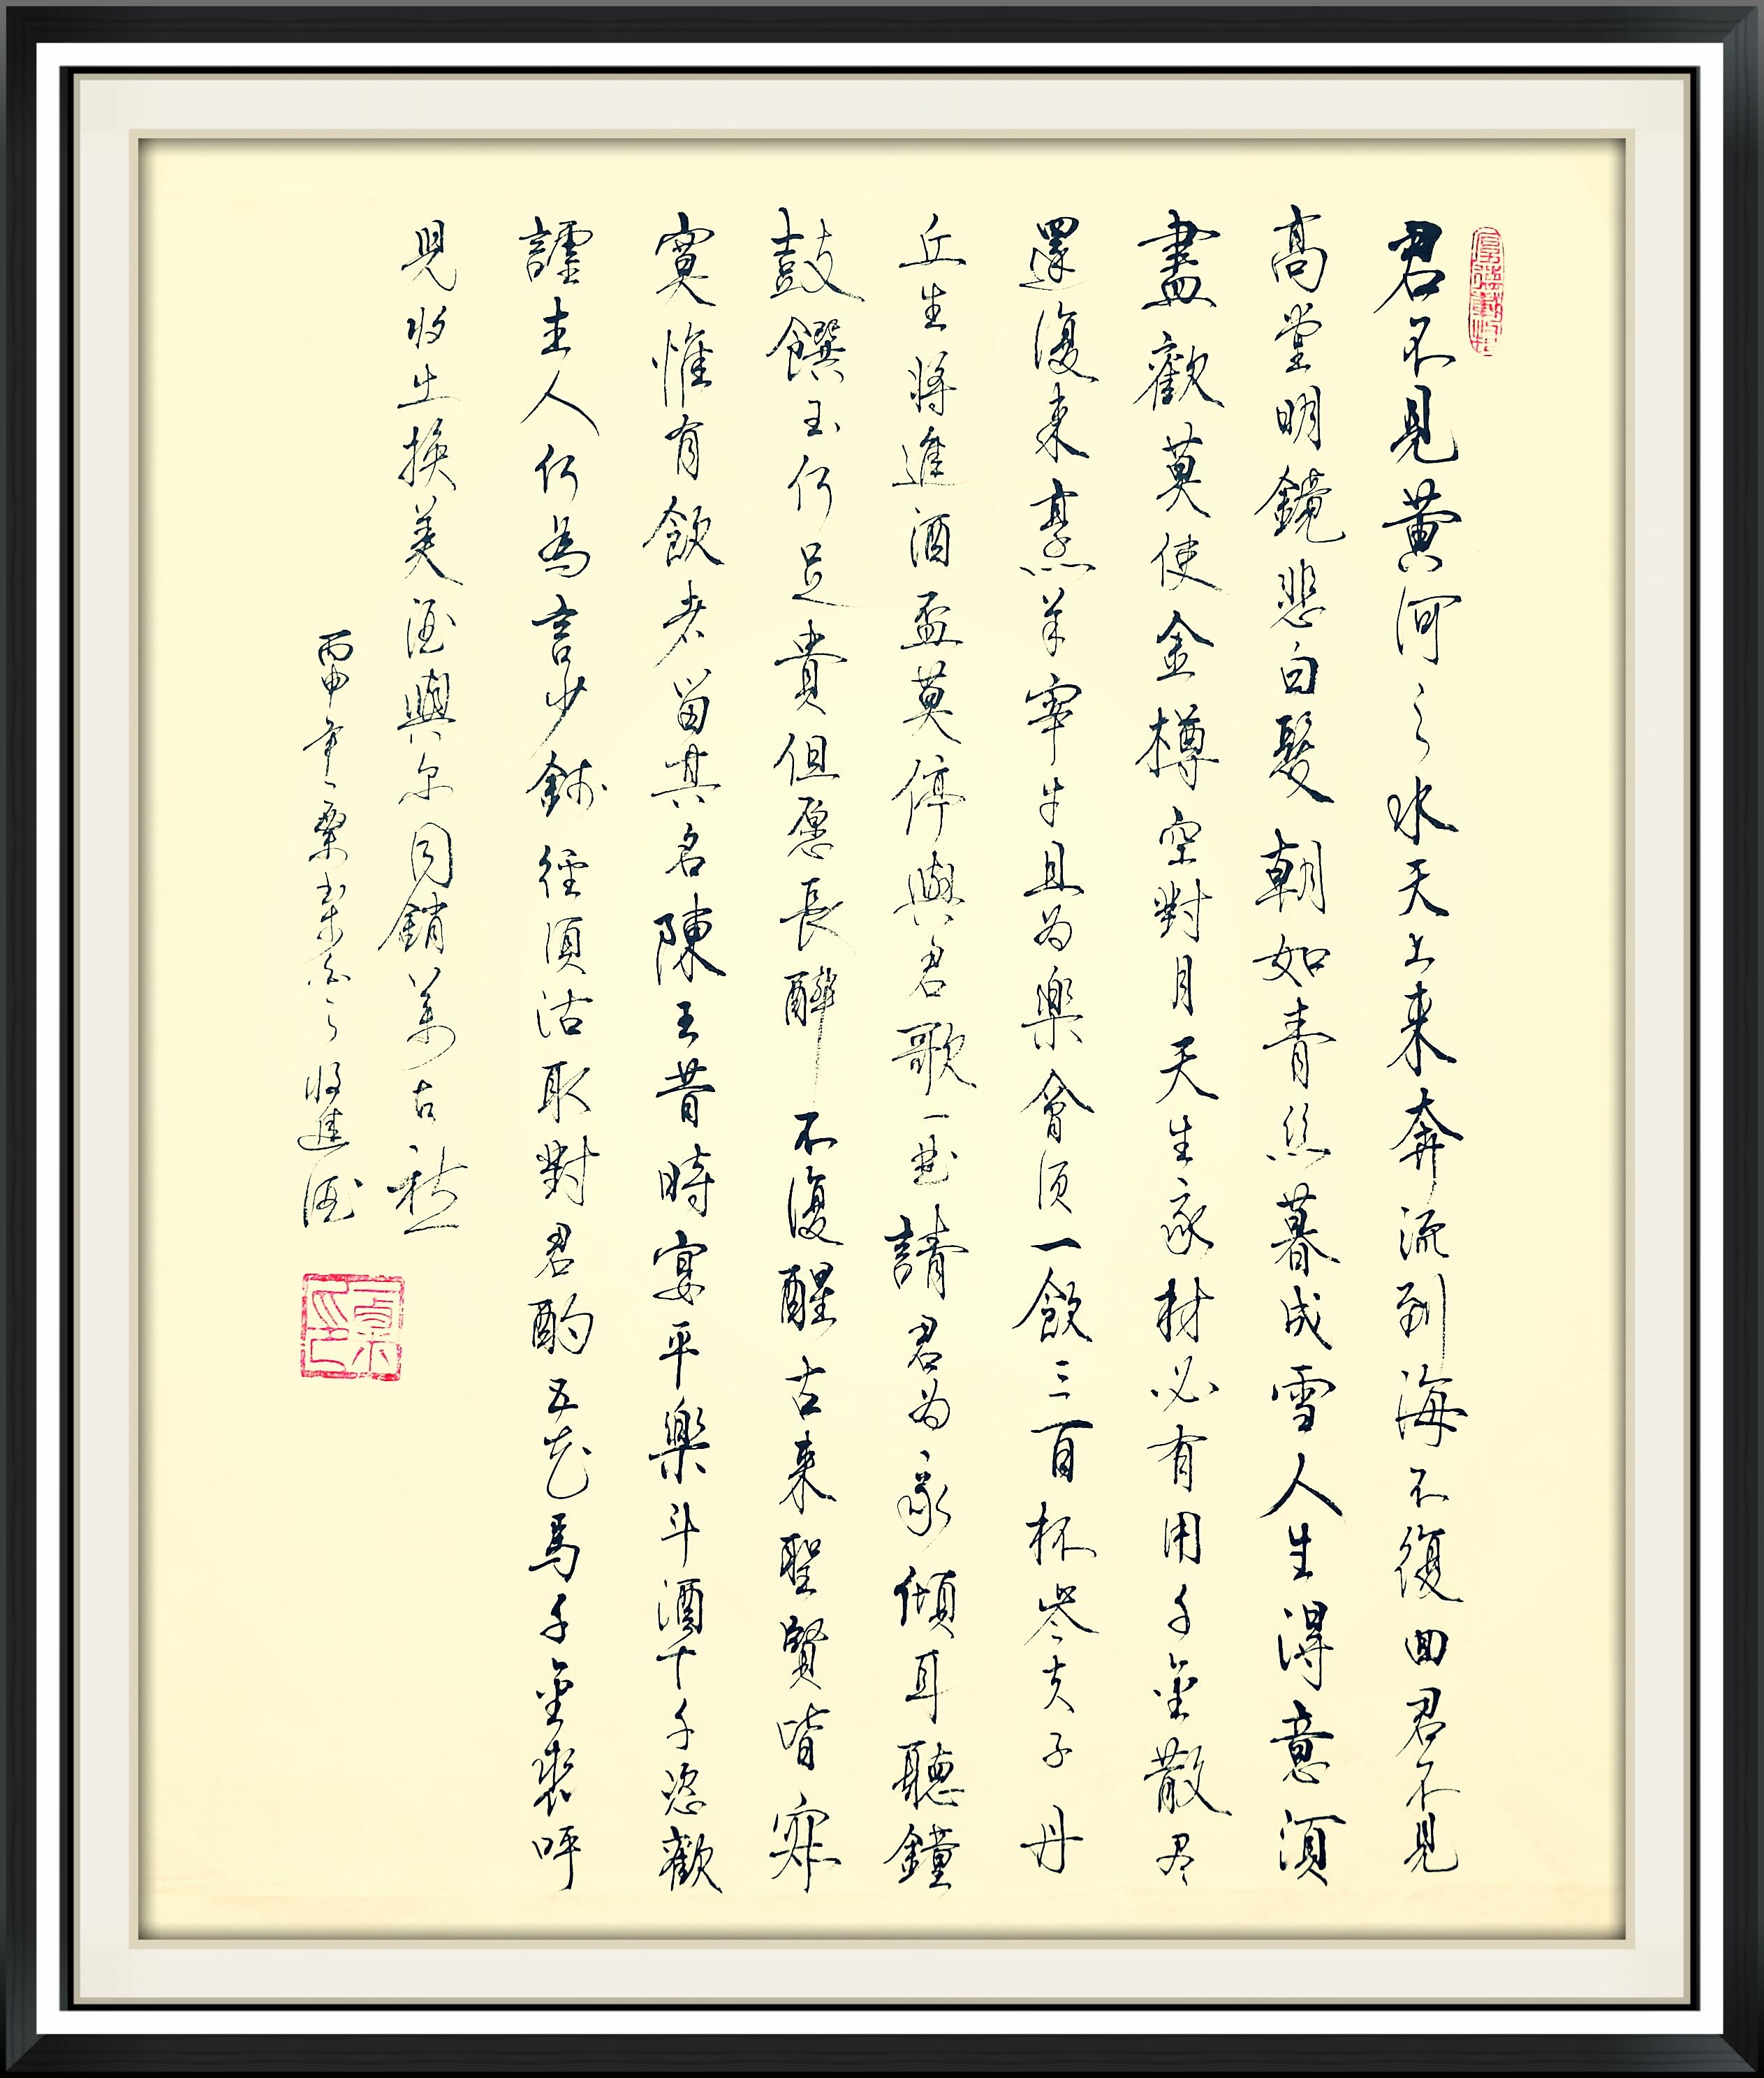 厚德載物
君不見黃河之水天上來奔流到海不復回君不見
高堂明鏡悲白髮朝如青絲暮成雪人生得意須
盡歡莫使金樽空對月天生我材必有用千金散尽
還復來烹羊宰牛且为樂會須一飲三百杯岑夫子丹
丘生將進酒盃莫停與君歌一曲請君为我傾耳聽鐘
鼓饌玉何足貴但愿長醉不復醒古來聖賢皆寂
寞惟有飲者留其名陳王昔時宴平樂斗酒十千恣歡
謔主人何為言少錢徑須沽取對君酌五花馬千金裘呼
児将出換美酒與尔同銷萬古愁
丙申年一粟书李白之将進酒
一粟